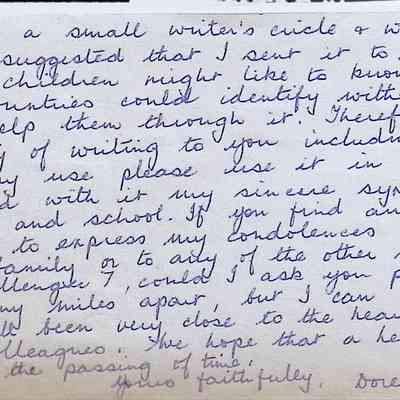 a small writer's circle & w
suggested that I sent it to
children might like to know
ountries could identify with
elp them through it. Theref
y of writing to you includin
ny use please use it in
d with it my sincere sym
and school. If you find an
to express my condolences
family or to any of the other
llenger 7, could I ask you p
ny miles apart, but I can
ll been very close to the hear
lleagues. We hope that a he
the passing of time.
Yours faithfully, Dore